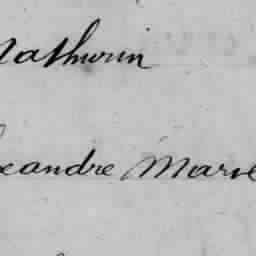 Mathurin
exandre Marie